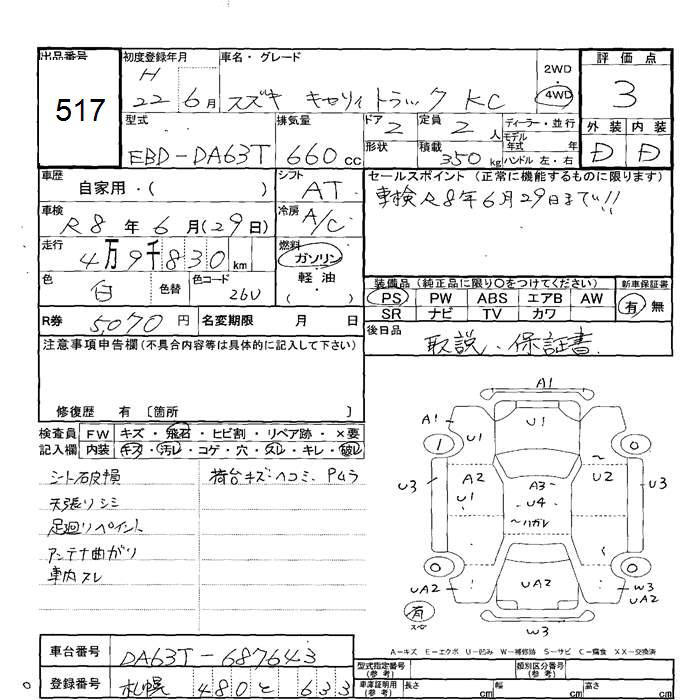 出品番号 初度登録年月 車名・グレード 評価点
517 H 22 6月 スズキ キャリィトラック KC 2WD・4WD 3
型式 排気量 ドア 定員 ディーラー・並行 外装 内装
EBD-DA63T 660cc 2 2人 モデル年式 年 D D
形状 積載 350kg ハンドル 左・右
車歴 自家用・( ) シフト AT
セールスポイント (正常に機能するものに限ります)
車検R8年6月29日まで!!
車検 R8年6月(29日) 冷房 A/C
走行 4万9千830km 燃料 ガソリン・軽油 ( )
色 白 色替 色コード 26U
装備品 (純正品に限り○をつけてください) 新車保証書
PS PW ABS エアB AW 有 無
SR ナビ TV カワ
R券 5070円 名変期限 月 日
後日品 取説、保証書
注意事項申告欄(不具合内容等は具体的に記入して下さい)
修復歴 有 〔箇所 〕
検査員 FW キズ・飛石・ヒビ割・リペア跡・×要
記入欄 内装 キズ・汚レ・コゲ・穴・スレ・キレ・破レ
シート破損 荷台キズ・ヘコミ、Pムラ
天張りシミ
足廻りペイント
アンテナ曲がり
車内スレ
A1
A1 U1 U1
1 0
U3 A2 U1 A3 U4 U2 U3
～ハガレ
0 0
UA2 UA2 W3 UA2
有 スペア
W3
A-キズ E-エクボ U-凹み W-補修跡 S-サビ C-腐食 XX-交換済
車台番号 DA63T-687643
型式指定番号(参考) 類別区分番号(参考)
登録番号 札幌 480 と 633
車庫証明用(参考) 長さ cm 幅 cm 高さ cm